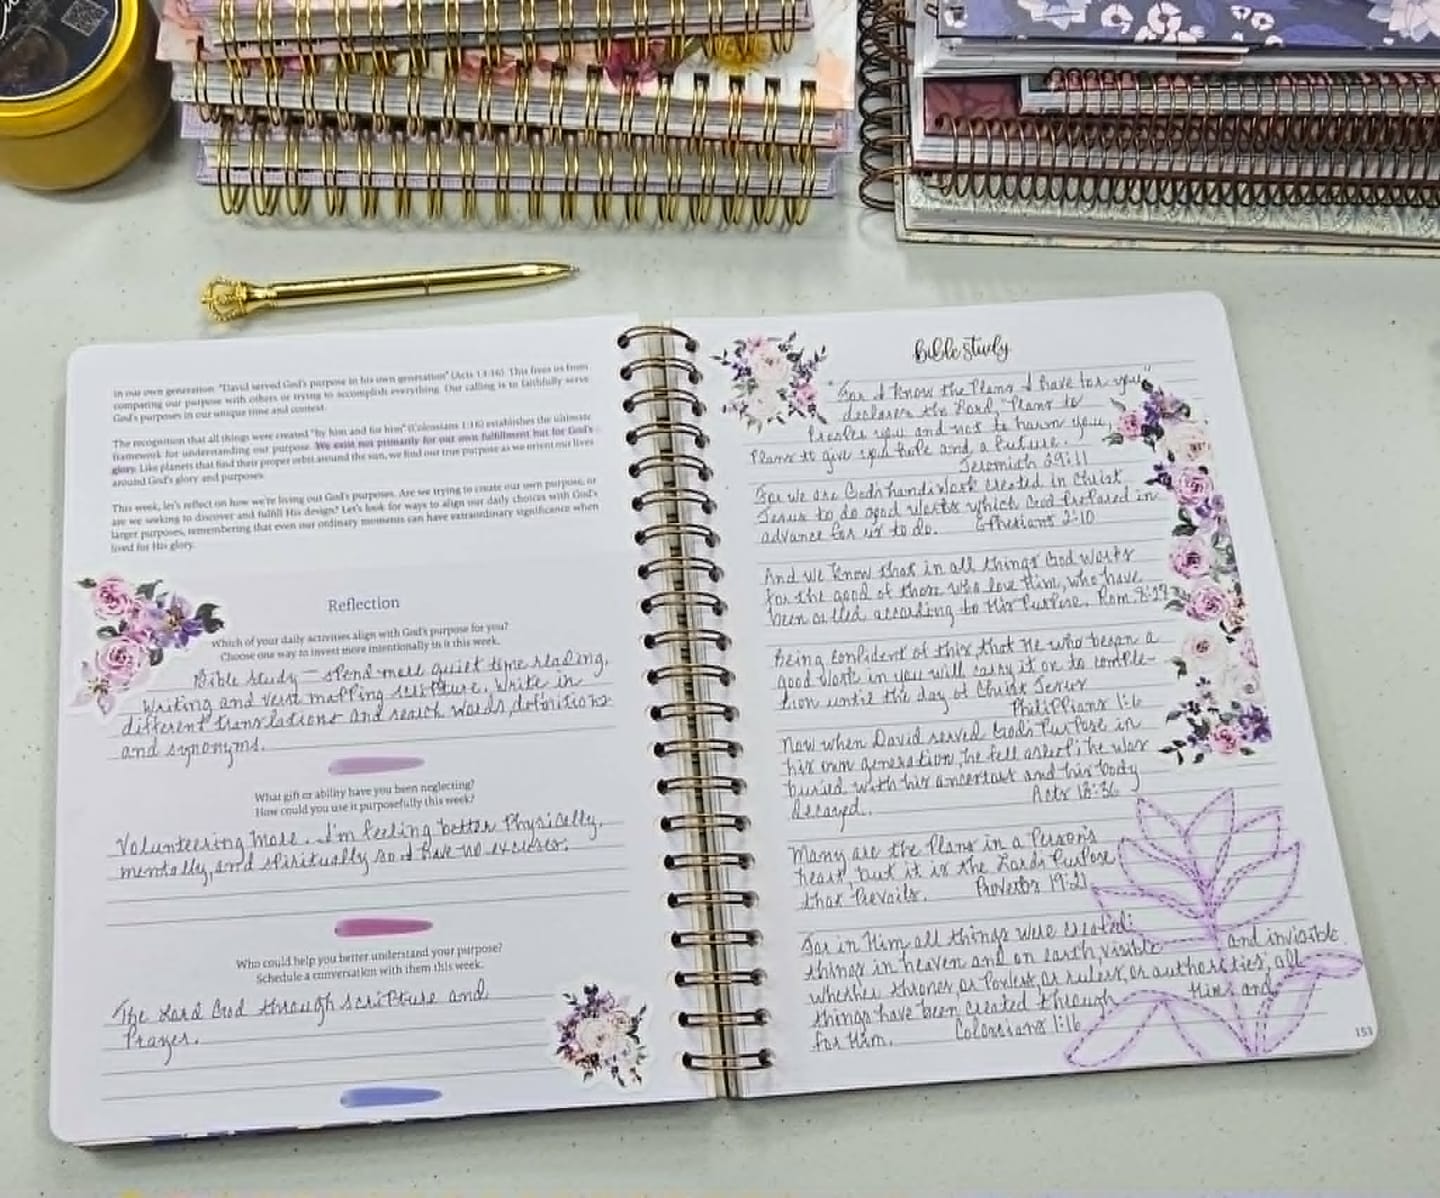 in our own generation. "David served God's purpose in his own generation" (Acts 13:36). This frees us from
comparing our purpose with others or trying to accomplish everything. Our calling is to faithfully serve
God's purposes in our unique time and context.
The recognition that all things were created "by him and for him" (Colossians 1:16) establishes the ultimate
framework for understanding our purpose. We exist not primarily for our own fulfillment but for God's
glory. Like planets that find their proper orbit around the sun, we find our true purpose as we orient our lives
around God's glory and purposes.
This week, let's reflect on how we're living out God's purposes. Are we trying to create our own purpose, or
are we seeking to discover and fulfill His design? Let's look for ways to align our daily choices with God's
larger purposes, remembering that even our ordinary moments can have extraordinary significance when
lived for His glory.
Reflection
Which of your daily activities align with God's purpose for you?
Choose one way to invest more intentionally in it this week.
Bible Study - spend more quiet time reading,
writing and verse mapping scripture. Write in
different translations and search words, definitions
and synonyms.
What gift or ability have you been neglecting?
How could you use it purposefully this week?
Volunteering more. I'm feeling better physically,
mentally, and spiritually so I have no excuses.
Who could help you better understand your purpose?
Schedule a conversation with them this week.
The Lord God through scripture and
Prayer.
Bible Study
"For I know the Plans I have for you"
declares the Lord, "Plans to
Prosper you and not to harm you,
Plans to give you hope and a future.
Jeremiah 29:11
For we are God's handiwork created in Christ
Jesus to do good works which God Prepared in
advance for us to do. Ephesians 2:10
And we know that in all things God works
for the good of those who love Him, who have
been called according to His Purpose. Rom. 8:28
Being confident of this, that He who began a
good work in you will carry it on to comple-
tion until the day of Christ Jesus
Philippians 1:6
Now when David served God's Purpose in
his own generation, he fell asleep; he was
buried with his ancestors and his body
decayed. Acts 13:36
Many are the Plans in a Person's
heart, but it is the Lord's Purpose
that Prevails. Proverbs 19:21
For in Him all things were created:
things in heaven and on earth, visible and invisible
whether thrones or Powers or rulers or authorities; all
things have been created through Him and
for Him. Colossians 1:16
153